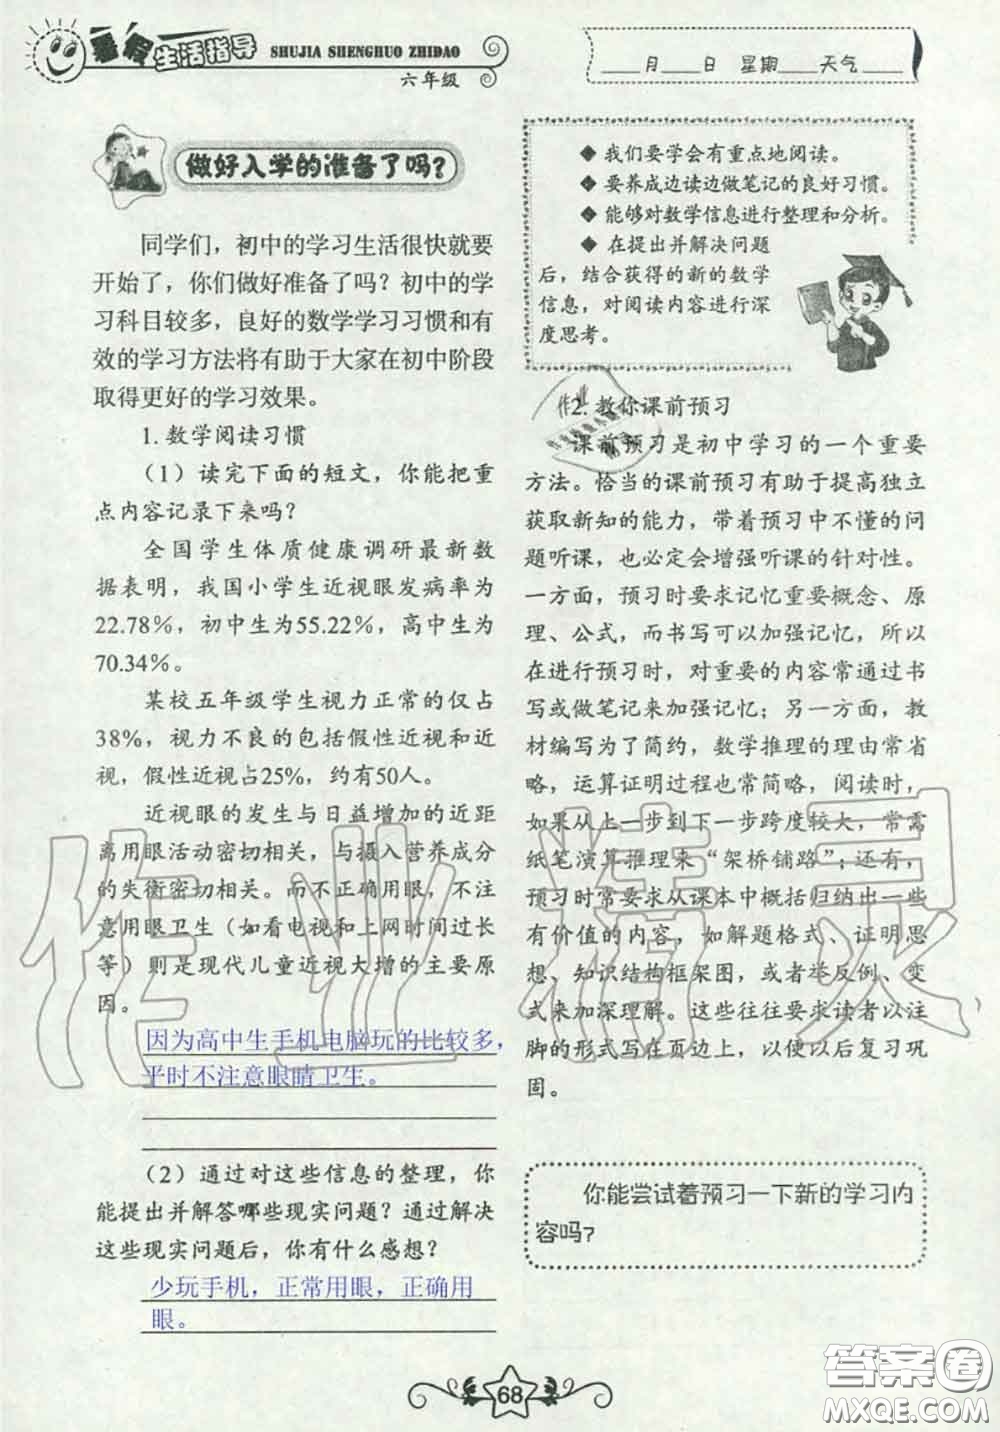 暑假生活指导
SHUJIA SHENGHUO ZHIDAO
六年级
____月____日 星期____天气____
做好入学的准备了吗?
同学们，初中的学习生活很快就要
开始了，你们做好准备了吗？初中的学
习科目较多，良好的数学学习习惯和有
效的学习方法将有助于大家在初中阶段
取得更好的学习效果。
1. 数学阅读习惯
（1）读完下面的短文，你能把重
点内容记录下来吗？
全国学生体质健康调研最新数
据表明，我国小学生近视眼发病率为
22.78%，初中生为55.22%，高中生为
70.34%。
某校五年级学生视力正常的仅占
38%，视力不良的包括假性近视和近
视，假性近视占25%，约有50人。
近视眼的发生与日益增加的近距
离用眼活动密切相关，与摄入营养成分
的失衡密切相关。而不正确用眼，不注
意用眼卫生（如看电视和上网时间过长
等）则是现代儿童近视大增的主要原
因。
因为高中生手机电脑玩的比较多，
平时不注意眼睛卫生。
（2）通过对这些信息的整理，你
能提出并解答哪些现实问题？通过解决
这些现实问题后，你有什么感想？
少玩手机，正常用眼，正确用
眼。
◆ 我们要学会有重点地阅读。
◆ 要养成边读边做笔记的良好习惯。
◆ 能够对数学信息进行整理和分析。
◆ 在提出并解决问题
后，结合获得的新的数学
信息，对阅读内容进行深
度思考。
2. 教你课前预习
课前预习是初中学习的一个重要
方法。恰当的课前预习有助于提高独立
获取新知的能力，带着预习中不懂的问
题听课，也必定会增强听课的针对性。
一方面，预习时要求记忆重要概念、原
理、公式，而书写可以加强记忆，所以
在进行预习时，对重要的内容常通过书
写或做笔记来加强记忆；另一方面，教
材编写为了简约，数学推理的理由常省
略，运算证明过程也常简略，阅读时，
如果从上一步到下一步跨度较大，常需
纸笔演算推理来“架桥铺路”；还有，
预习时常要求从课本中概括归纳出一些
有价值的内容，如解题格式、证明思
想、知识结构框架图，或者举反例、变
式来加深理解。这些往往要求读者以注
脚的形式写在页边上，以便以后复习巩
固。
你能尝试着预习一下新的学习内
容吗？
68
作业精灵
答案圈
MXQE.COM